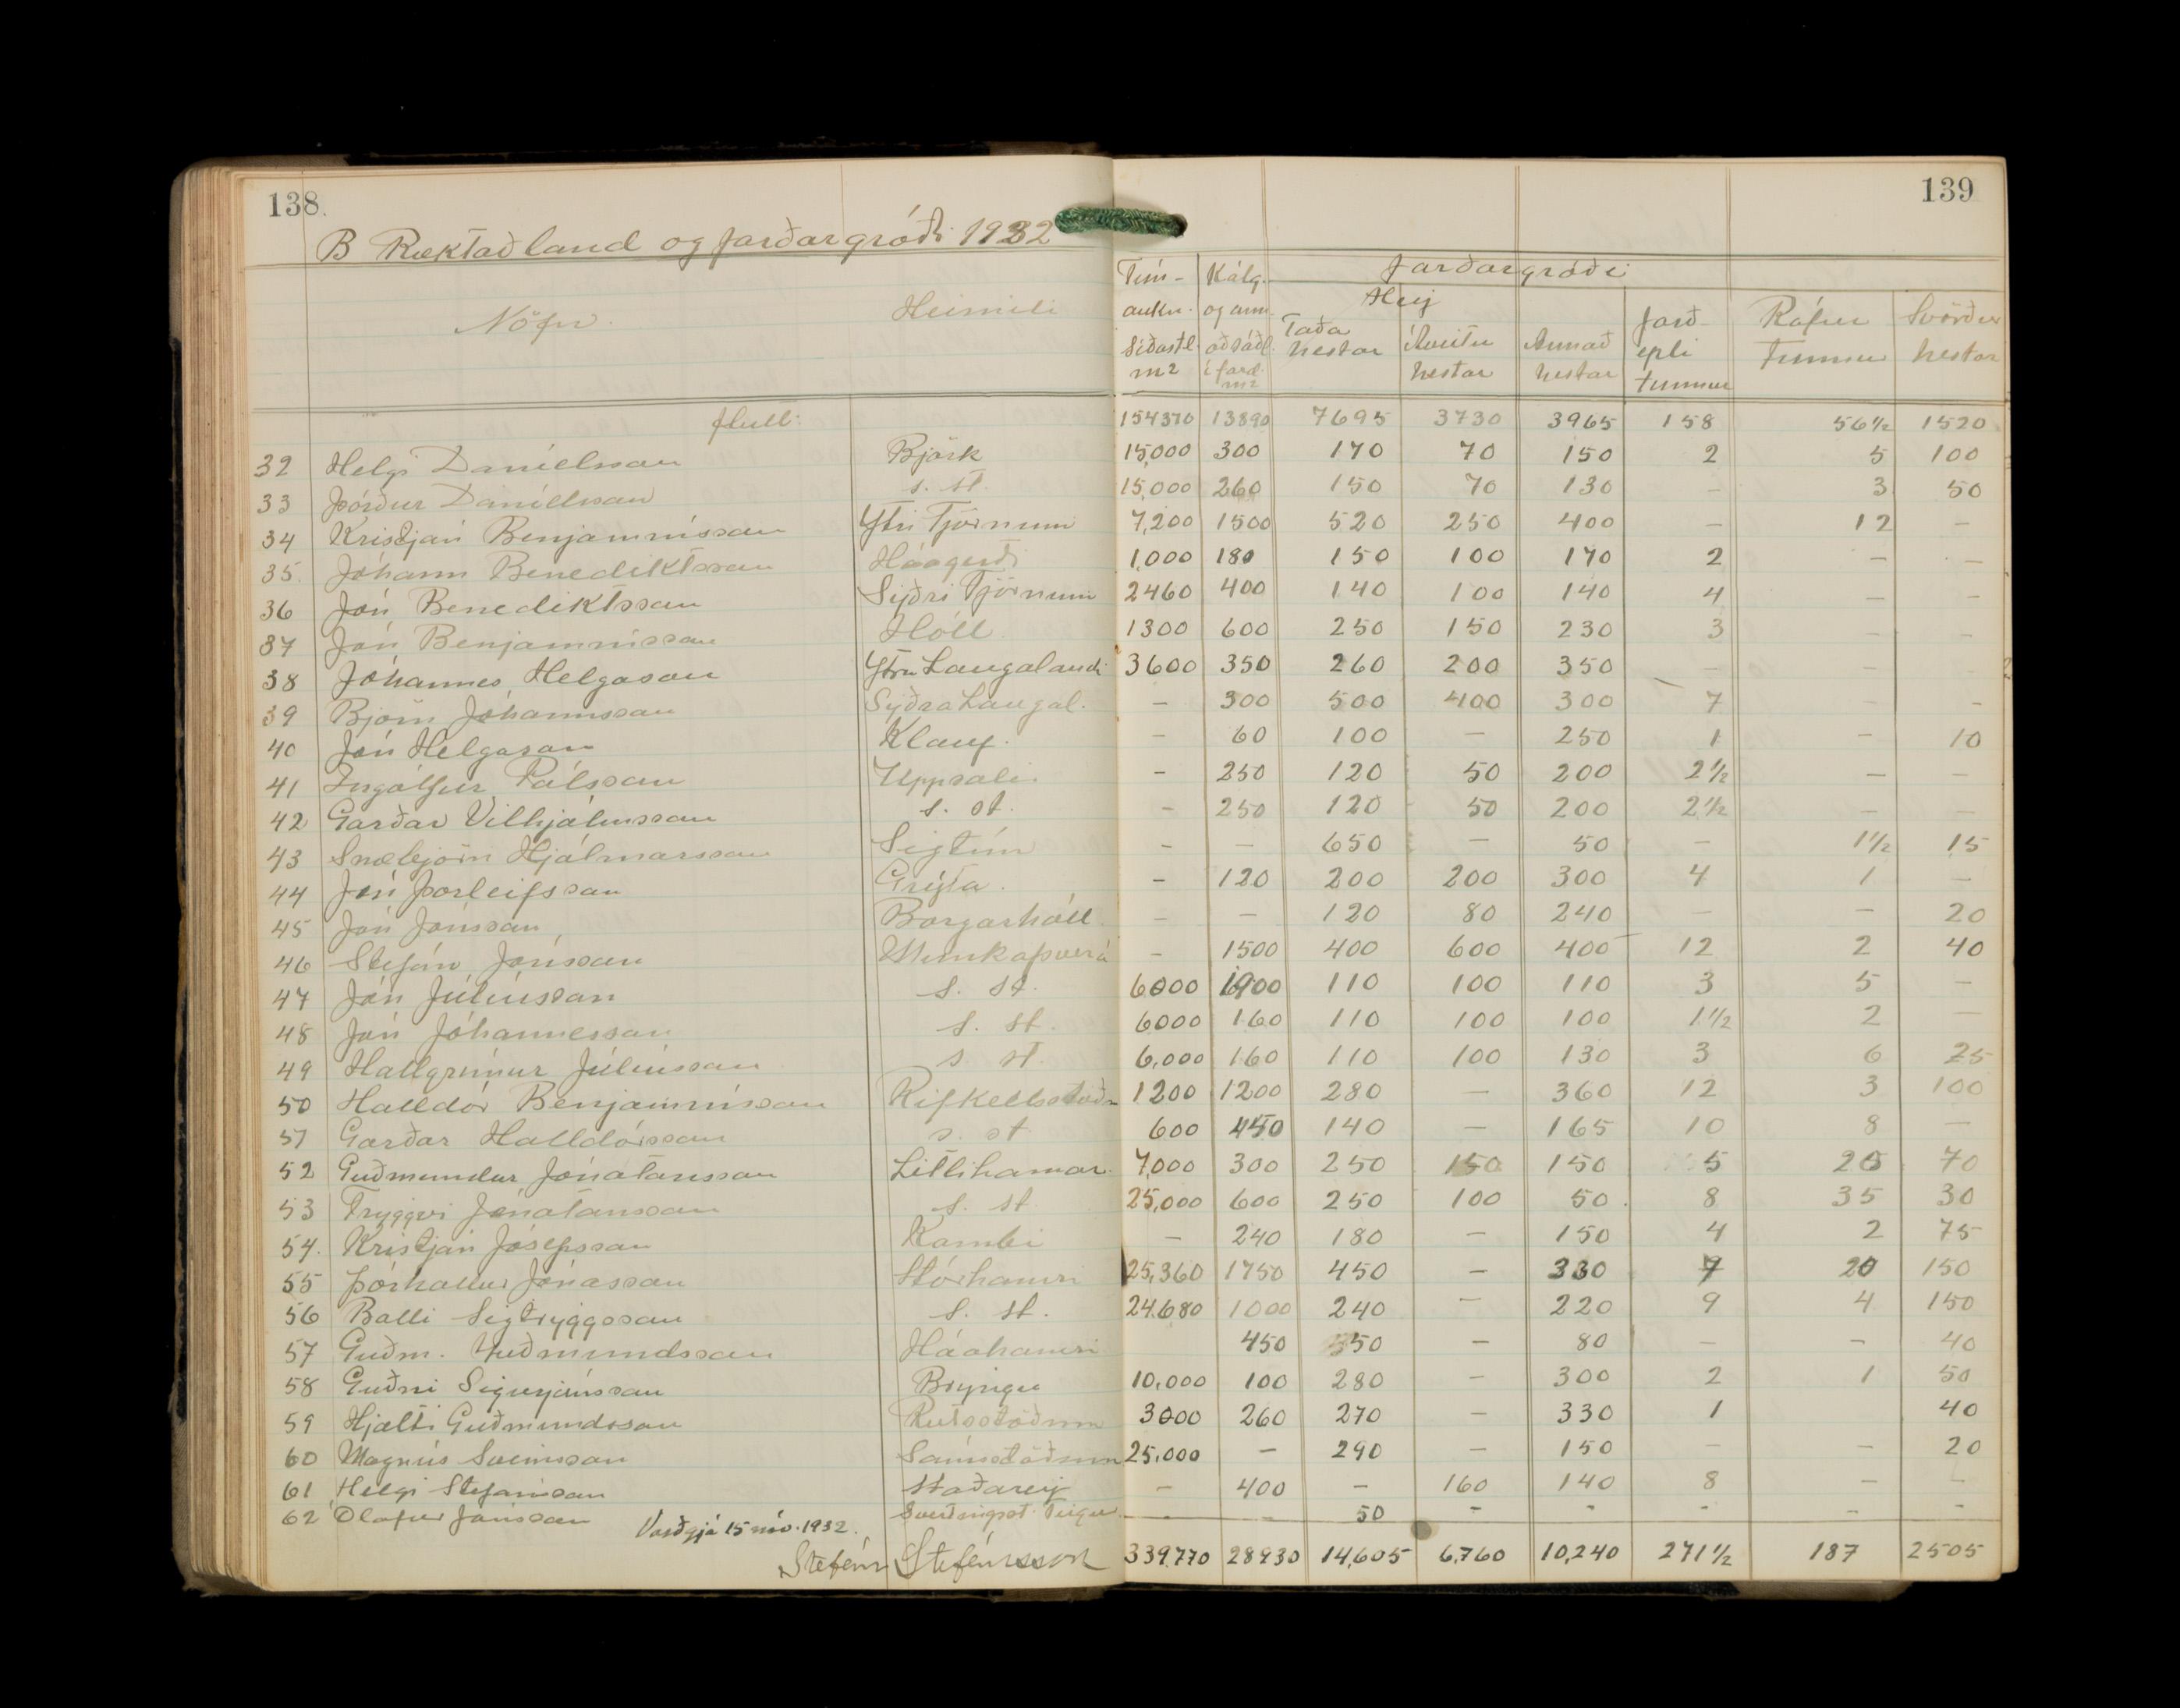 138.
139
B Ræktað land og jarðargróði 1932
Nöfn. Heimili
Tún-aukn. síðastl. m2
Kálg. og ann. m2
Jarðargróði
Hey
Taða hestar
Áveitu hestar
Annað hestar
Jarð-epli tunnur
Rófur tunnur
Svörður hestar
Flutt: 154370 13890 7695 3730 3965 158 56½ 1520
32 Helgi Daníelsson Björk 15,000 300 170 70 150 2 5 100
33 Þórður Daníelsson s. st. 15,000 260 150 70 130 – 3 50
34 Kristján Benjamínsson Ytri Tjörnum 7,200 1500 520 250 400 – 12 –
35. Jóhann Benediktsson Háagerði 1,000 180 150 100 170 2 – –
36 Jón Benediktsson Syðri Tjörnum 2460 400 140 100 140 4 – –
37 Jón Benjamínsson Hóll 1300 600 250 150 230 3 – –
38 Jóhannes Helgason Ytra Laugalandi 3600 350 260 200 350 – – –
39 Björn Jóhannsson Syðra Laugal. – 300 500 400 300 7 – –
40 Jón Helgason Klauf. – 60 100 – 250 1 – 10
41 Ingólfur Pálsson Uppsali. – 250 120 50 200 2½ – –
42 Garðar Vilhjálmsson s. st. – 250 120 50 200 2½ – –
43 Snæbjörn Hjálmarsson Sigtún – – 650 – 50 – 1½ 15
44 Jón Þorleifsson Grýta. – 120 200 200 300 4 1 –
45 Jón Jónsson Borgarhóll. – – 120 80 240 – – 20
46 Stefán Jónsson Munkaþverá – 1500 400 600 400 12 2 40
47 Jón Júlíusson s. st. 6000 1900 110 100 110 3 5 –
48 Jón Jóhannesson s. st. 6000 160 110 100 100 1½ 2 –
49 Hallgrímur Júlíusson s. st. 6,000 160 110 100 130 3 6 25
50 Halldór Benjamínsson Rifkelsstöðum 1200 1200 280 – 360 12 3 100
51 Garðar Halldórsson s. st 600 450 140 – 165 10 8 –
52 Guðmundur Jónatansson Litlihamar. 7,000 300 250 150 150 5 25 70
53 Tryggvi Jónatansson s. st. 25,000 600 250 100 50. 8 35 30
54. Kristján Jósefsson Kambi – 240 180 – 150 4 2 75
55 Þórhallur Jónasson Stórhamri 25,360 1750 450 – 330 7 20 150
56 Balli Sigtryggsson s. st. 24.680 1000 240 – 220 9 4 150
57 Guðm. Guðmundsson Háahamri 450 350 – 80 – – 40
58 Guðni Sigurjónsson Bryngu 10,000 100 280 – 300 2 1 50
59 Hjalti Guðmundsson Rutsstöðum 3000 260 270 – 330 1 40
60 Magnús Sveinsson Sámsstöðum 25,000 – 290 – 150 – – 20
61 Helgi Stefánsson Staðarey – 400 – 160 140 8 – –
62 Ólafur Jónsson Sveðingsst. Teigur – – 50 – – – – –
Varðgjá 15 nóv. 1932.
Stefán Stefánsson 339,770 28930 14,605 6,760 10,240 271½ 187 2505